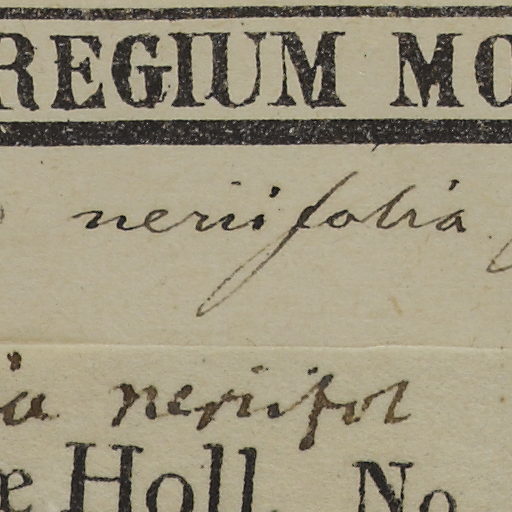 REGIUM MO
neriifolia
ia neriifol
æ Holl. No